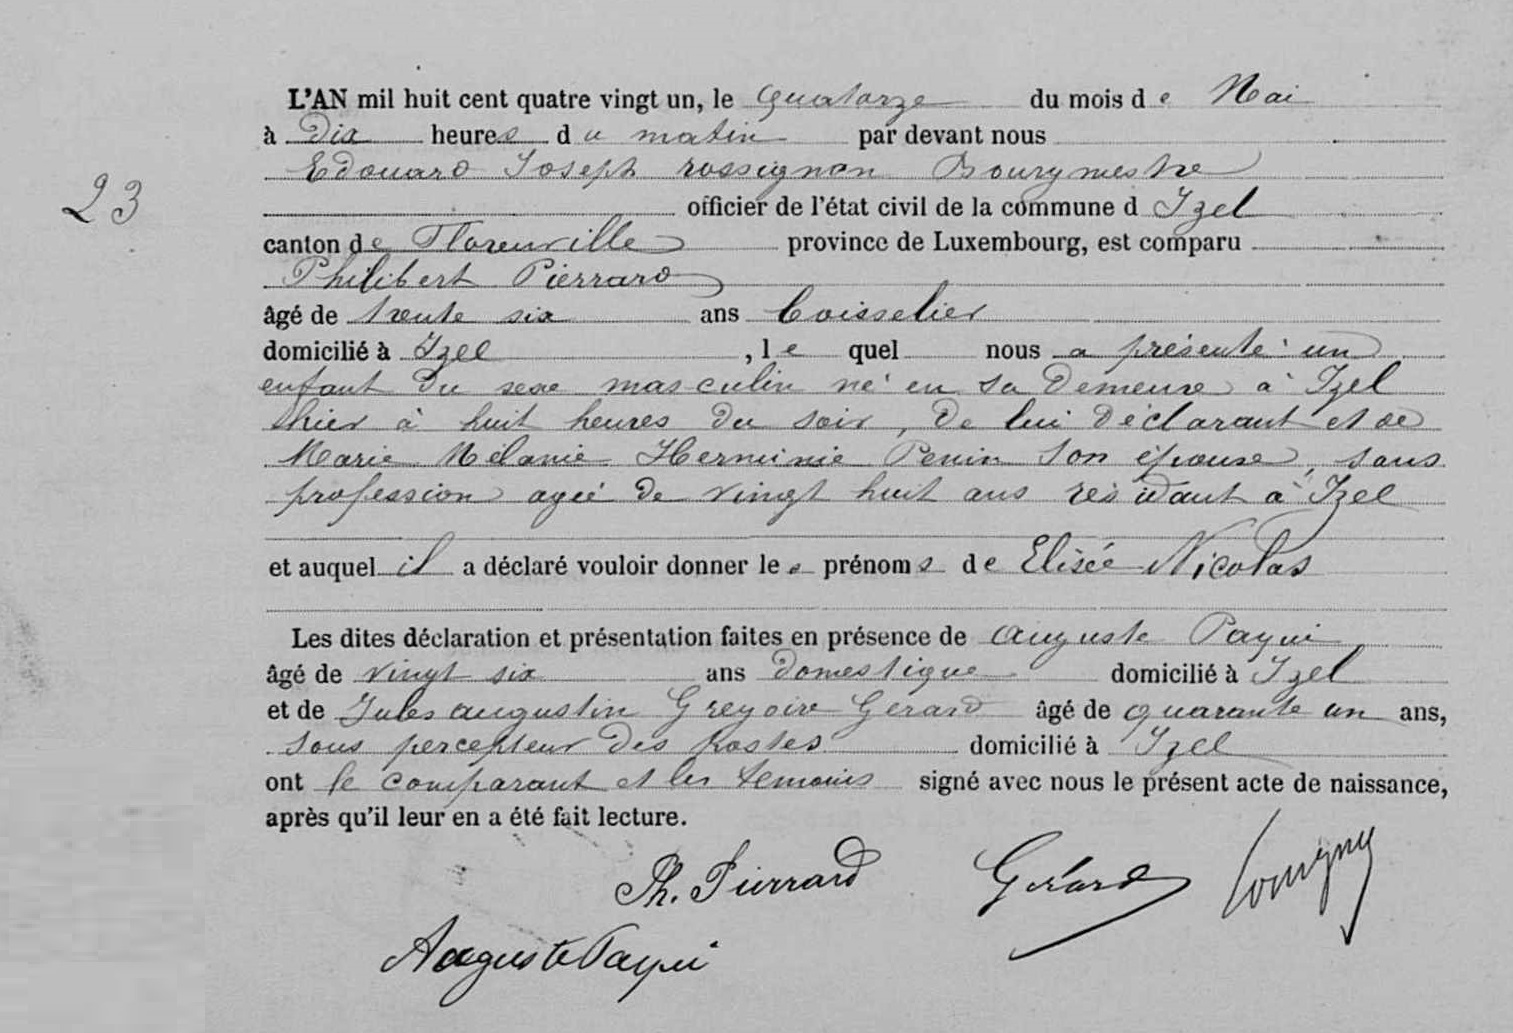 L'AN mil huit cent quatre vingt un, le quatorze du mois de Mai
à Dix heures du matin par devant nous
Edouard Joseph rossignon Bourgmestre
23
officier de l'état civil de la commune d Izel
canton de Florenville province de Luxembourg, est comparu
Philibert Pierrard
âgé de trente six ans boisselier
domicilié à Izel, le quel nous a présenté un
enfant du sexe masculin né en sa Demeure à Izel
hier à huit heures du soir, De lui Déclarant et de
Marie Mélanie Herminie Penin son épouse, sans
profession agée de vingt huit ans résidant à Izel
et auquel il a déclaré vouloir donner les prénoms de Elisée Nicolas
Les dites déclaration et présentation faites en présence de auguste Payui
âgé de vingt six ans domestique domicilié à Izel
et de Jules augustin Gregoire Gerard âgé de quarante un ans,
sous percepteur des postes domicilié à Izel
ont le comparant et les temoins signé avec nous le présent acte de naissance,
après qu'il leur en a été fait lecture.
Ph. Pierrard Gérard
Auguste Payui